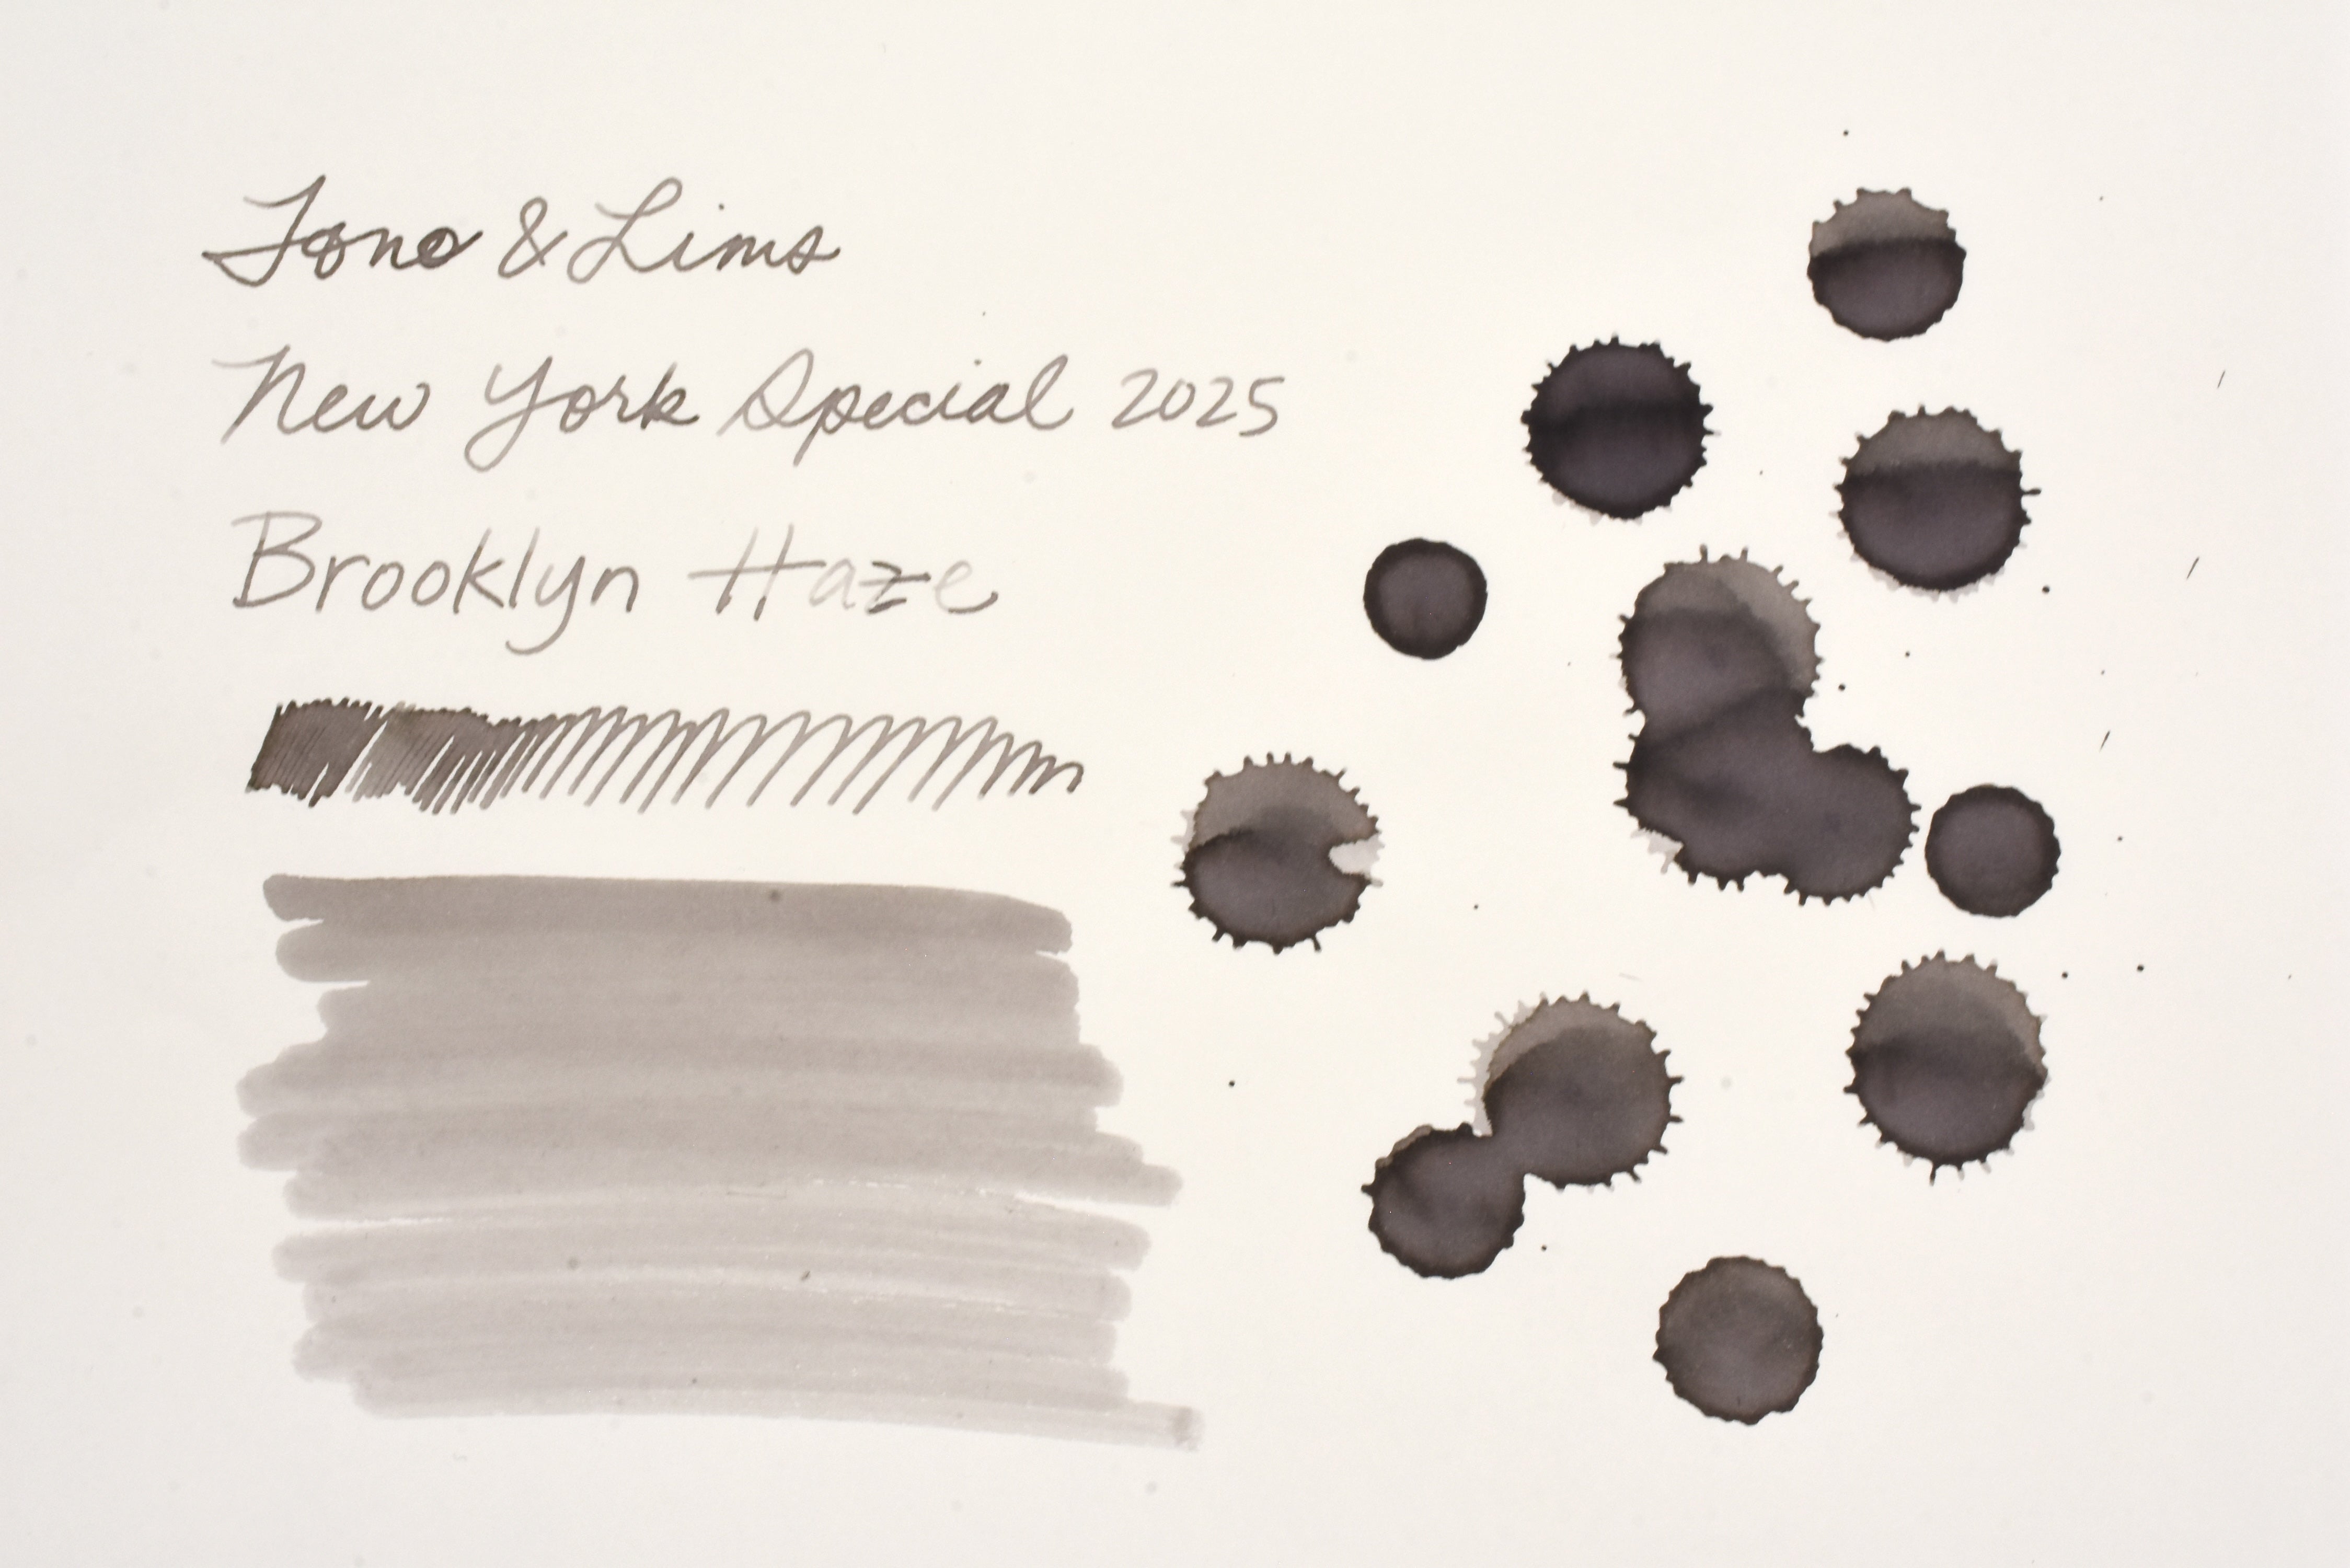 Tono & Lims
New York Special 2025
Brooklyn Haze